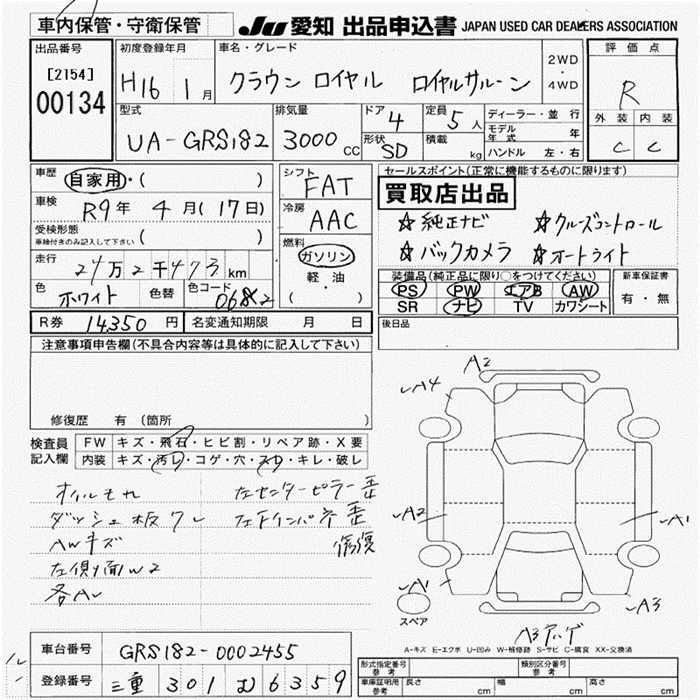 車内保管・守衛保管
JU 愛知 出品申込書 JAPAN USED CAR DEALERS ASSOCIATION
出品番号
[2154]
00134
初度登録年月
H16 1月
車名・グレード
クラウン ロイヤル ロイヤルサルーン
2WD
・
4WD
評価点
R
外装 内装
C C
型式
UA-GRS182
排気量
3000 CC
ドア 4
形状 SD
定員 5人
積載 kg
ディーラー・並行
モデル年式 年
ハンドル 左・右
車歴 自家用・( )
車検 R9年 4月(17日)
受検形態
車検付きのみ記入して下さい ( )
走行 24万2千473km
色 ホワイト 色替 色コード 062
シフト FAT
冷房 AAC
燃料
ガソリン
軽・油
( )
セールスポイント(正常に機能するものに限ります)
買取店出品
☆純正ナビ ☆クルーズコントロール
☆バックカメラ ☆オートライト
装備品(純正品に限り○をつけてください)
PS PW エアB AW
SR ナビ TV カワシート
新車保証書
有・無
R券 14,350円 名変通知期限 月 日
後日品
注意事項申告欄(不具合内容等は具体的に記入して下さい)
修復歴 有(箇所
検査員記入欄
FW キズ・飛石・ヒビ割・リペア跡・X要
内装 キズ・汚レ・コゲ・穴・スレ・キレ・破レ
オイルモれ 左センターピラー歪
ダッシュ板ワレ
AWキズ 修復
左側面W2
各AU
A2
A4
A2
A1
A1
A3
スペア
A3アゲ
A-キズ E-エクボ U-凹み W-補修跡 S-サビ C-腐食 XX-交換済
車台番号 GRS182-0002455
登録番号 三重 301 む 6359
形式指定番号 参考
類別区分番号 参考
車庫証明用 参考 長さ cm 幅 cm 高さ cm